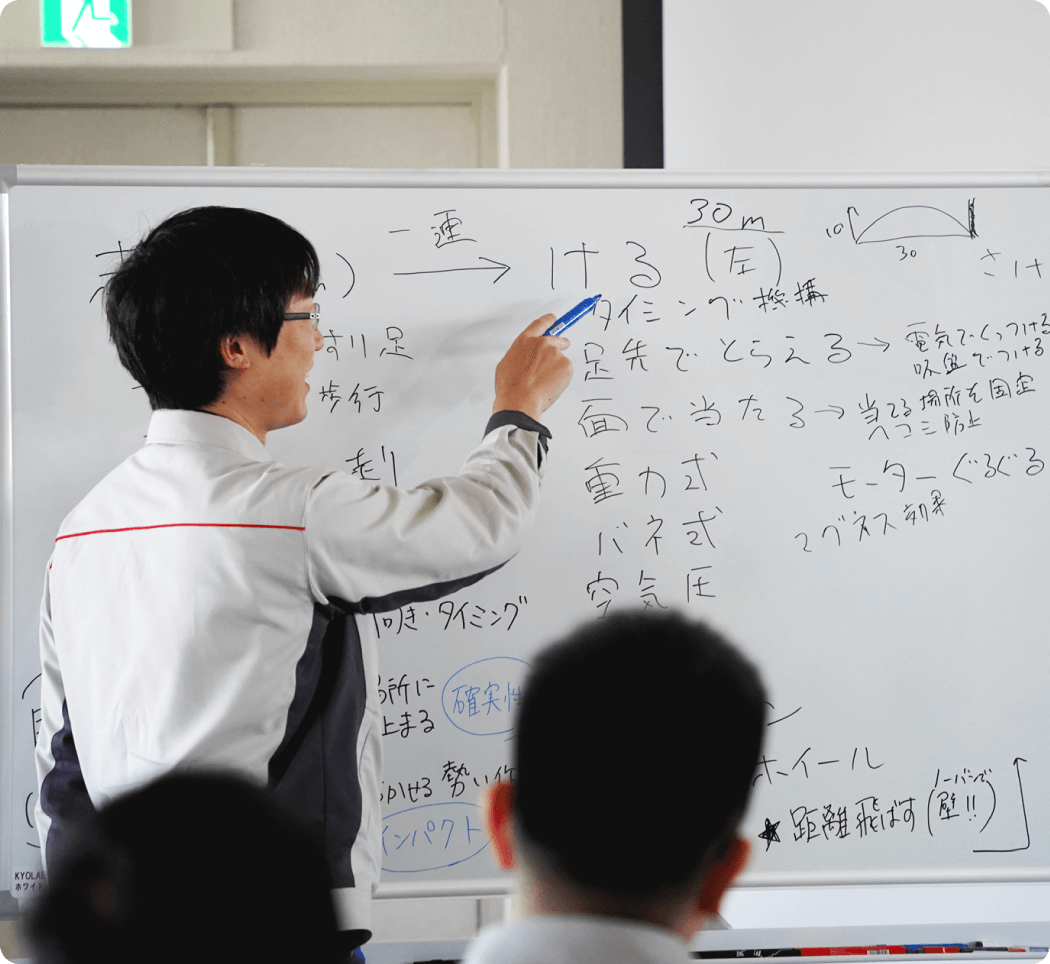 一連 → ける (左)
30m
10
30
さけ
タイミング機構
足先でとらえる → 電気でくっつける
吸盤でつける
面で当たる → 当てる場所を固定
ヘコミ防止
重力式
バネ式
空気圧
モーターぐるぐる
マグネス効果
すり足
歩行
走り
向き・タイミング
所に
止まる
確実性
かせる 勢い
インパクト
ン
ホイール
★距離飛ばす (ノーバンで
壁!!)
KYOLA
ホワイト